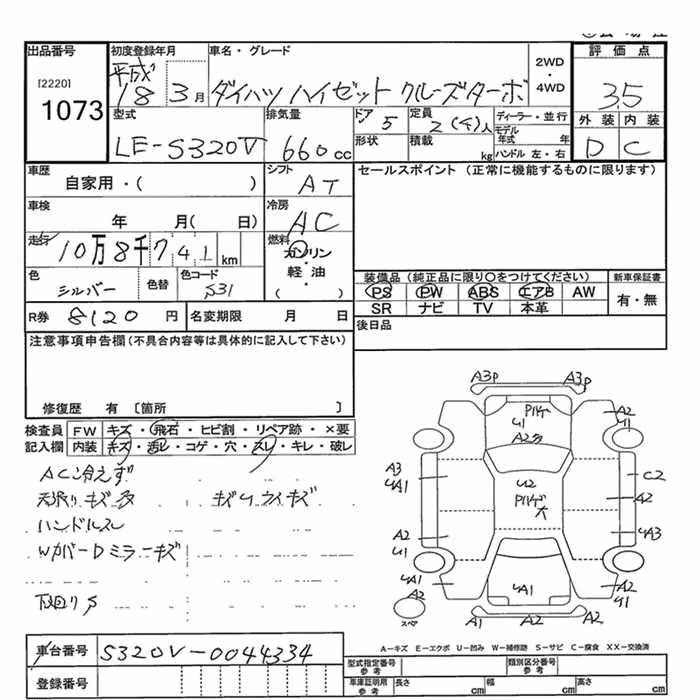 出品番号 初度登録年月 車名・グレード 2WD・4WD 評価点
[2220]
1073
平成
18 3月 ダイハツ ハイゼット クルーズターボ 3.5
型式 排気量 ドア 5 定員 ディーラー・並行 外装 内装
LE-S320V 660cc 2(4)人 モデル年式 年 D C
形状 積載 kg ハンドル 左・右
車歴 シフト セールスポイント (正常に機能するものに限ります)
自家用・( ) AT
車検 冷房
年 月( 日) AC
走行 10万8千741km 燃料
ガソリン・軽油・( )
色 シルバー 色替 色コード S31
装備品(純正品に限り○をつけてください) 新車保証書
PS PW ABS エアB AW 有・無
SR ナビ TV 本革
R券 8120円 名変期限 月 日 後日品
注意事項申告欄(不具合内容等は具体的に記入して下さい)
修復歴 有 〔箇所 〕
検査員 FW キズ・飛石・ヒビ割・リペア跡・×要
記入欄 内装 キズ・汚レ・コゲ・穴・スレ・キレ・破レ
AC冷えず
キズ多 キズ
ハンドルスレ
Wカバー Dミラーキズ
下回りS
A3P A3P
A2
U1
U1
A2多
A3
C2
U2
A2
A2
A3
U1
A2
A1
A2
U1
スペア
A1 A2 A2
A-キズ E-エクボ U-凹み W-補修跡 S-サビ C-腐食 XX-交換済
車台番号 S320V-0044334
型式指定番号 参考 類別区分番号 参考
登録番号 車庫証明用 参考 長さ cm 幅 cm 高さ cm